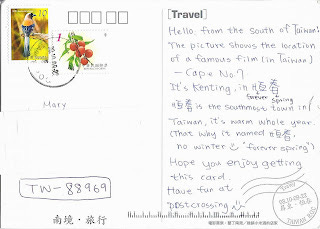 [Travel]
Hello, from the south of Taiwan!
The picture shows the location
of a famous film (in Taiwan)
— Cape No.7
It's Kenting, in 恒春,
forever spring
恒春 is the southmost town in
Taiwan, it's warm whole year.
(That why it named 恒春,
no winter "forever spring")
Hope you enjoy getting
this card.
Have fun at
postcrossing
Mary
TW-88969
南境·旅行
TAIWAN
10